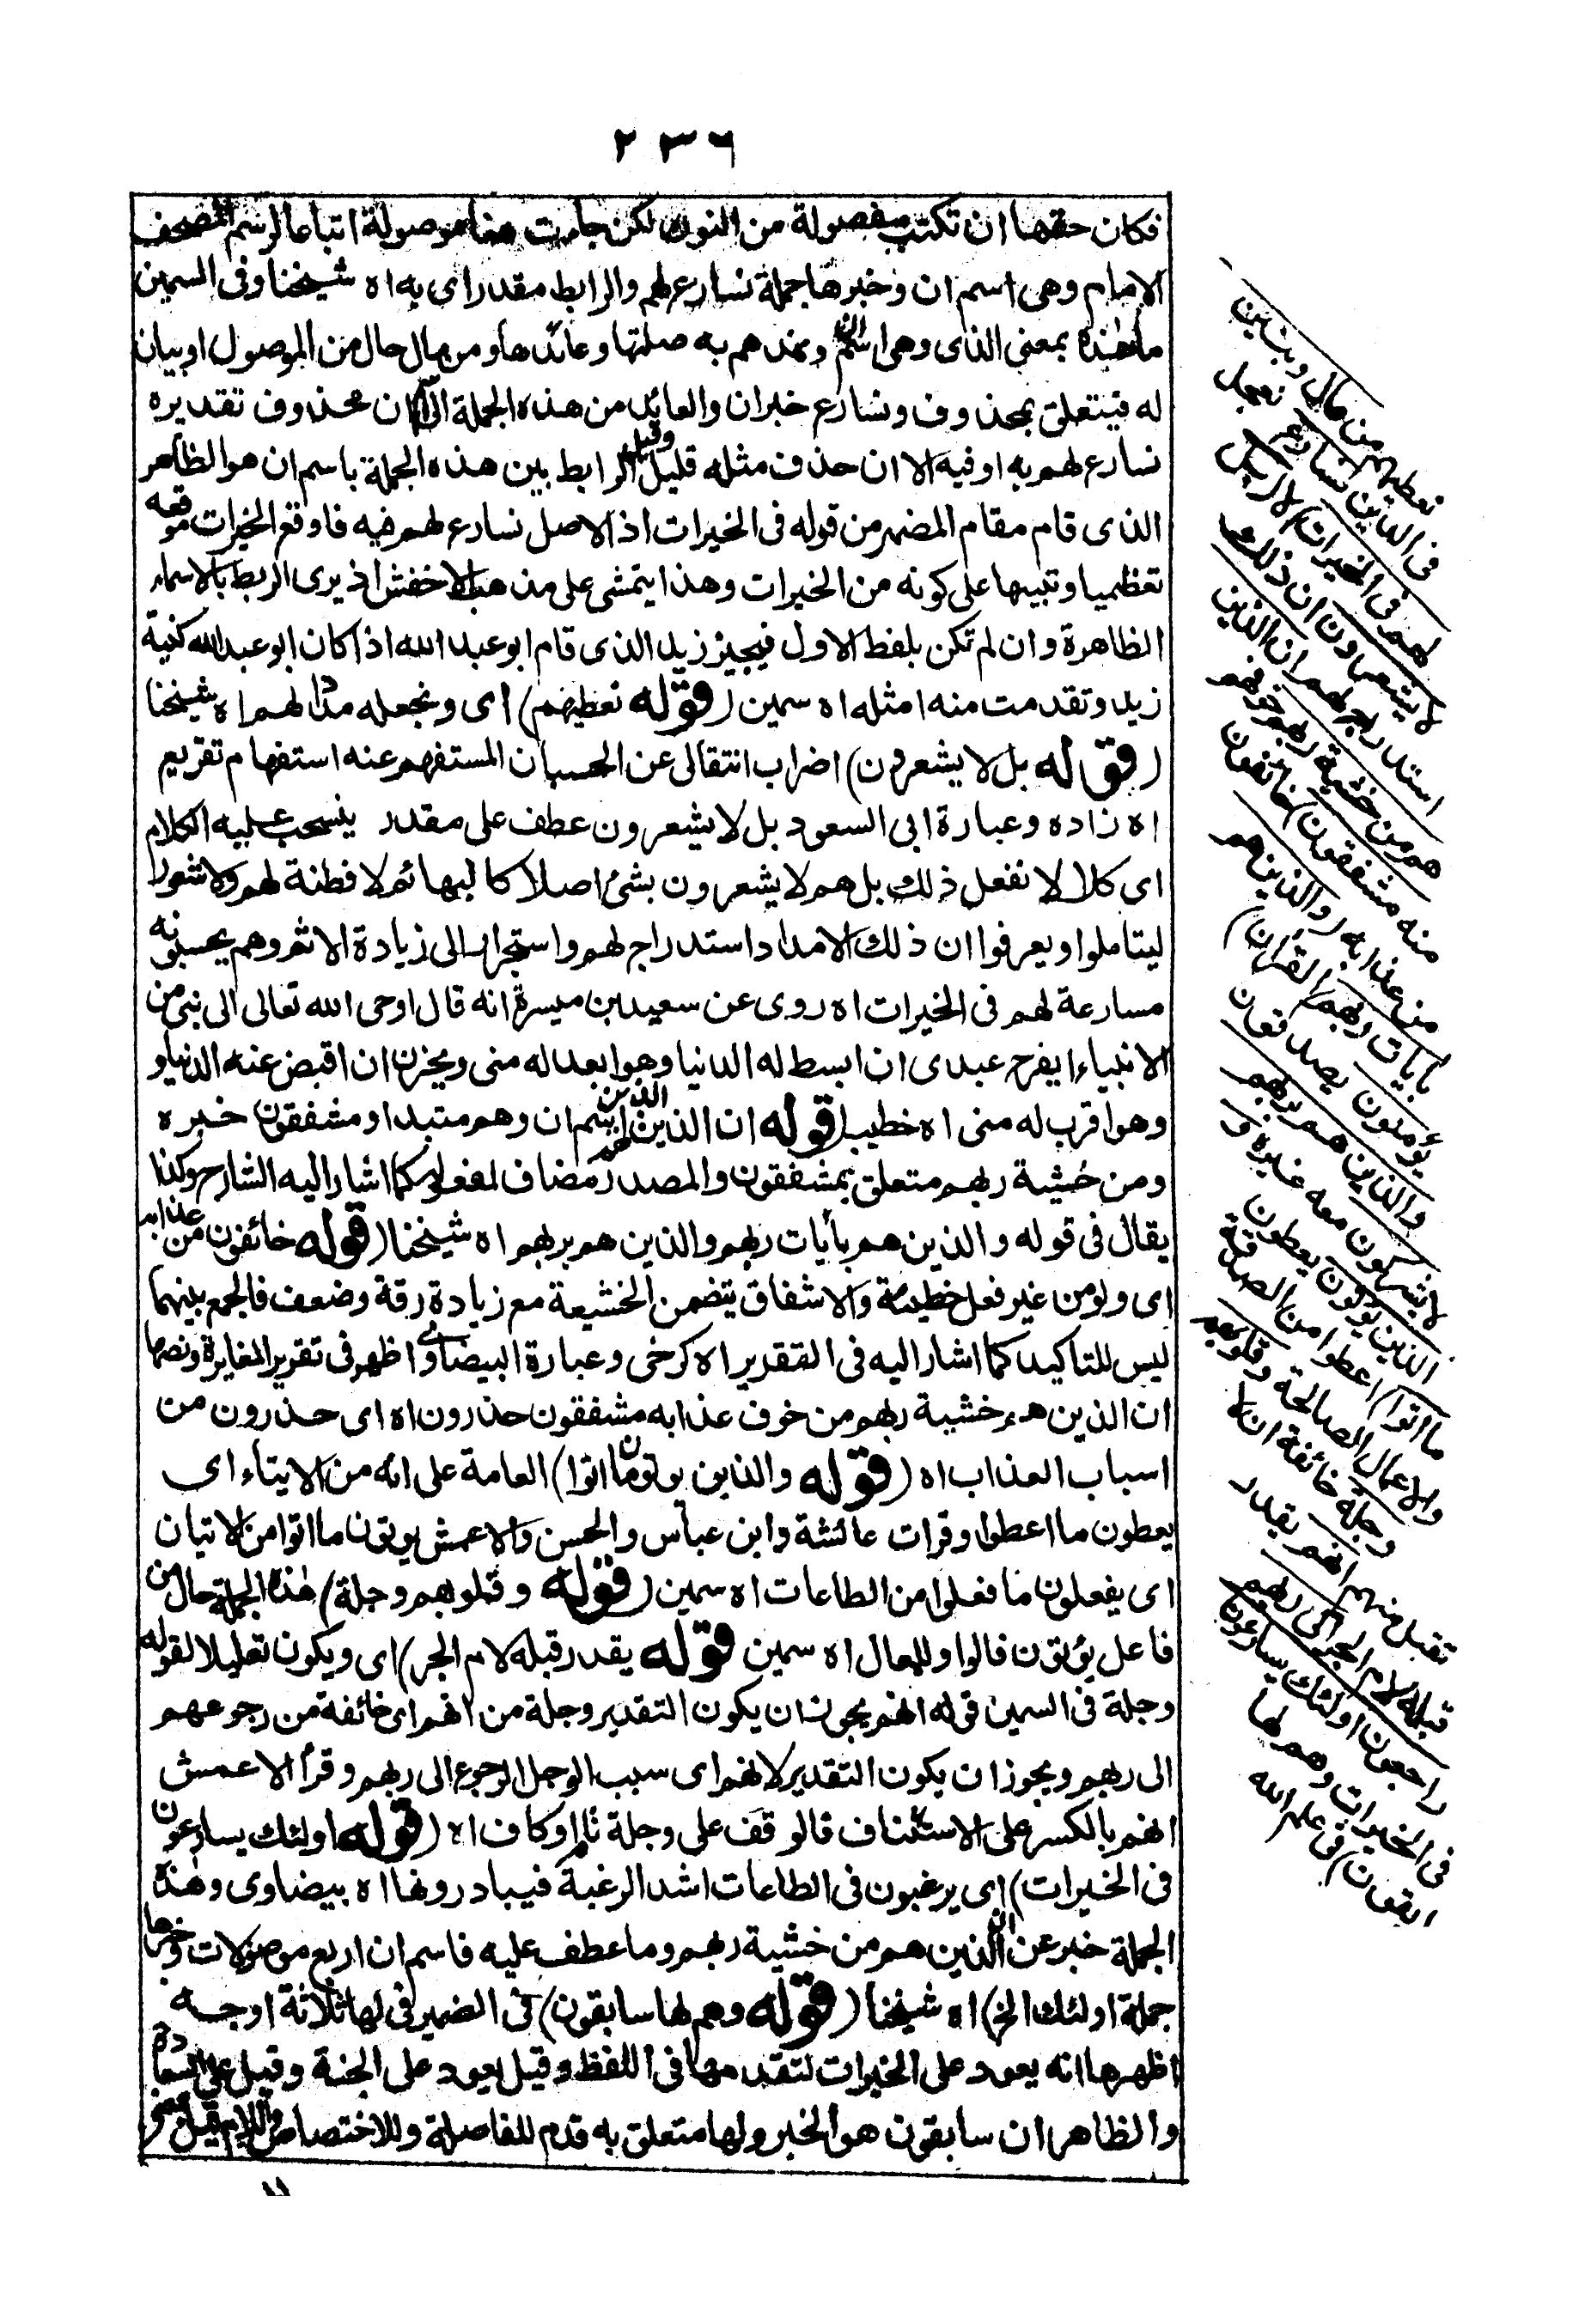 ٢٣٦
فكان حقها ان تكتب مفصولة من النون لكن جاءت هنا موصولة اتباعا لرسم المصحف
الامام وهى اسم ان وخبرها جملة نسارع لهم والرابط مقدر اى به اه شيخنا وفى السمين
ما هذه بمعنى الذى وهى اسم ان ونمدهم به صلتها وعائدها ومن مال حال من الموصول او بيان
له فيتعلق بمحذوف ونسارع خبر ان والعائد من هذه الجملة الى ان محذوف تقديره
نسارع لهم به او فيه الا ان حذف مثله قليل وقيل الرابط بين هذه الجملة باسم ان هو الظاهر
الذى قام مقام المضمر من قوله فى الخيرات اذ الاصل نسارع لهم فيه فاوقع الخيرات موقعه
تعظيما وتنبيها على كونه من الخيرات وهذا يتمشى على مذهب الاخفش اذ يرى الربط بالاسماء
الظاهرة وان لم تكن بلفظ الاول فيجيز زيد الذى قام ابو عبد الله اذا كان ابو عبد الله كنية
زيد وتقدمت منه امثله اه سمين (قوله نعطيهم) اى ونجعله مددا لهم اه شيخنا
(قوله بل لا يشعرون) اضراب انتقالى عن الحسبان المستفهم عنه استفهام تقريع
اه زاده وعبارة ابى السعود بل لا يشعرون عطف على مقدر ينسحب عليه الكلام
اى كلا لا نفعل ذلك بل هم لا يشعرون بشئ اصلا كالبهائم لا فطنة لهم ولا شعور
ليتاملوا ويعرفوا ان ذلك الامداد استدراج لهم واستجرار الى زيادة الاثم وهم يحسبونه
مسارعة لهم فى الخيرات اه روى عن سعيد بن ميسرة انه قال اوحى الله تعالى الى نبى من
الانبياء ايفرح عبدى ان ابسط له الدنيا وهو ابعد له منى ويحزن ان اقبض عنه الدنيا و
وهو اقرب له منى اه خطيب (قوله ان الذين) الذين اسم ان وهم مبتدا ومشفقون خبره
ومن خشية ربهم متعلق بمشفقون والمصدر مضاف لمفعوله كما اشار اليه الشارح وكذا
يقال فى قوله والذين هم بأيات ربهم والذين هم بربهم اه شيخنا (قوله خائفون من عذابه
اى ولو من غير فعل خطيئة والاشفاق يتضمن الخشية مع زيادة رقة وضعف فالجمع بينهما
ليس للتاكيد كما اشار اليه فى التقدير اه كرخى وعبارة البيضاوى اظهر فى تقرير المغايرة ونصها
ان الذين هم من خشية ربهم من خوف عذابه مشفقون حذرون اه اى حذرون من
اسباب العذاب اه (قوله والذين يوتون ما اتوا) العامة على انه من الايتاء اى
يعطون ما اعطوا وقرات عائشة وابن عباس والحسن والاعمش يوتون ما اتوا من الاتيان
اى يفعلون ما فعلوا من الطاعات اه سمين (قوله وقلوبهم وجلة) هذه الجملة حال من
فاعل يؤتون فالواو للحال اه سمين قوله يقدر قبله لام الجر) اى ويكون تعليلا لقوله
وجلة فى السمين قوله انهم يجوز ان يكون التقدير وجلة من انهم اى خائفة من رجوعهم
الى ربهم ويجوز ان يكون التقدير لانهم اى سبب الوجل الرجوع الى ربهم وقرأ الاعمش
انهم بالكسر على الاستئناف فالوقف على وجلة تام او كاف اه (قوله اولئك يسارعون
فى الخيرات) اى يرغبون فى الطاعات اشد الرغبة فيبادرونها اه بيضاوى وهذه
الجملة خبر عن ان الذين هم من خشية ربهم وما عطف عليه فاسم ان اربع موصولات وخبرها
جملة اولئك الخ) اه شيخنا (قوله وهم لها سابقون) فى الضمير فى لها ثلاثة اوجه
اظهرها انه يعود على الخيرات لتقدمها فى اللفظ وقيل يعود على الجنة وقيل على السعادة
والظاهر ان سابقون هو الخبر ولها متعلق به قدم للفاصلة وللاختصاص واللام قيل
نعطيهم من مال وبنين
فى الدنيا نسارع نعجل
لهم فى الخيرات) لا بل
لا يشعرون ان ذلك
استدراج لهم ان الذين
هم من خشية ربهم خوفهم
منه مشفقون) خائفون
من عذابه (والذين هم
بايات ربهم القرآن)
يؤمنون يصدقون
والذين هم بربهم
لا يشركون معه غيره و
الذين يؤتون يعطون
ما اتوا) اعطوا من الصدقة
والاعمال الصالحة وقلوبهم
وجلة خائفة ان لا
تقبل منهم انهم يقدر
قبله لام الجر الى ربهم
راجعون اولئك يسارعون
فى الخيرات وهم لها
سابقون) فى علم الله